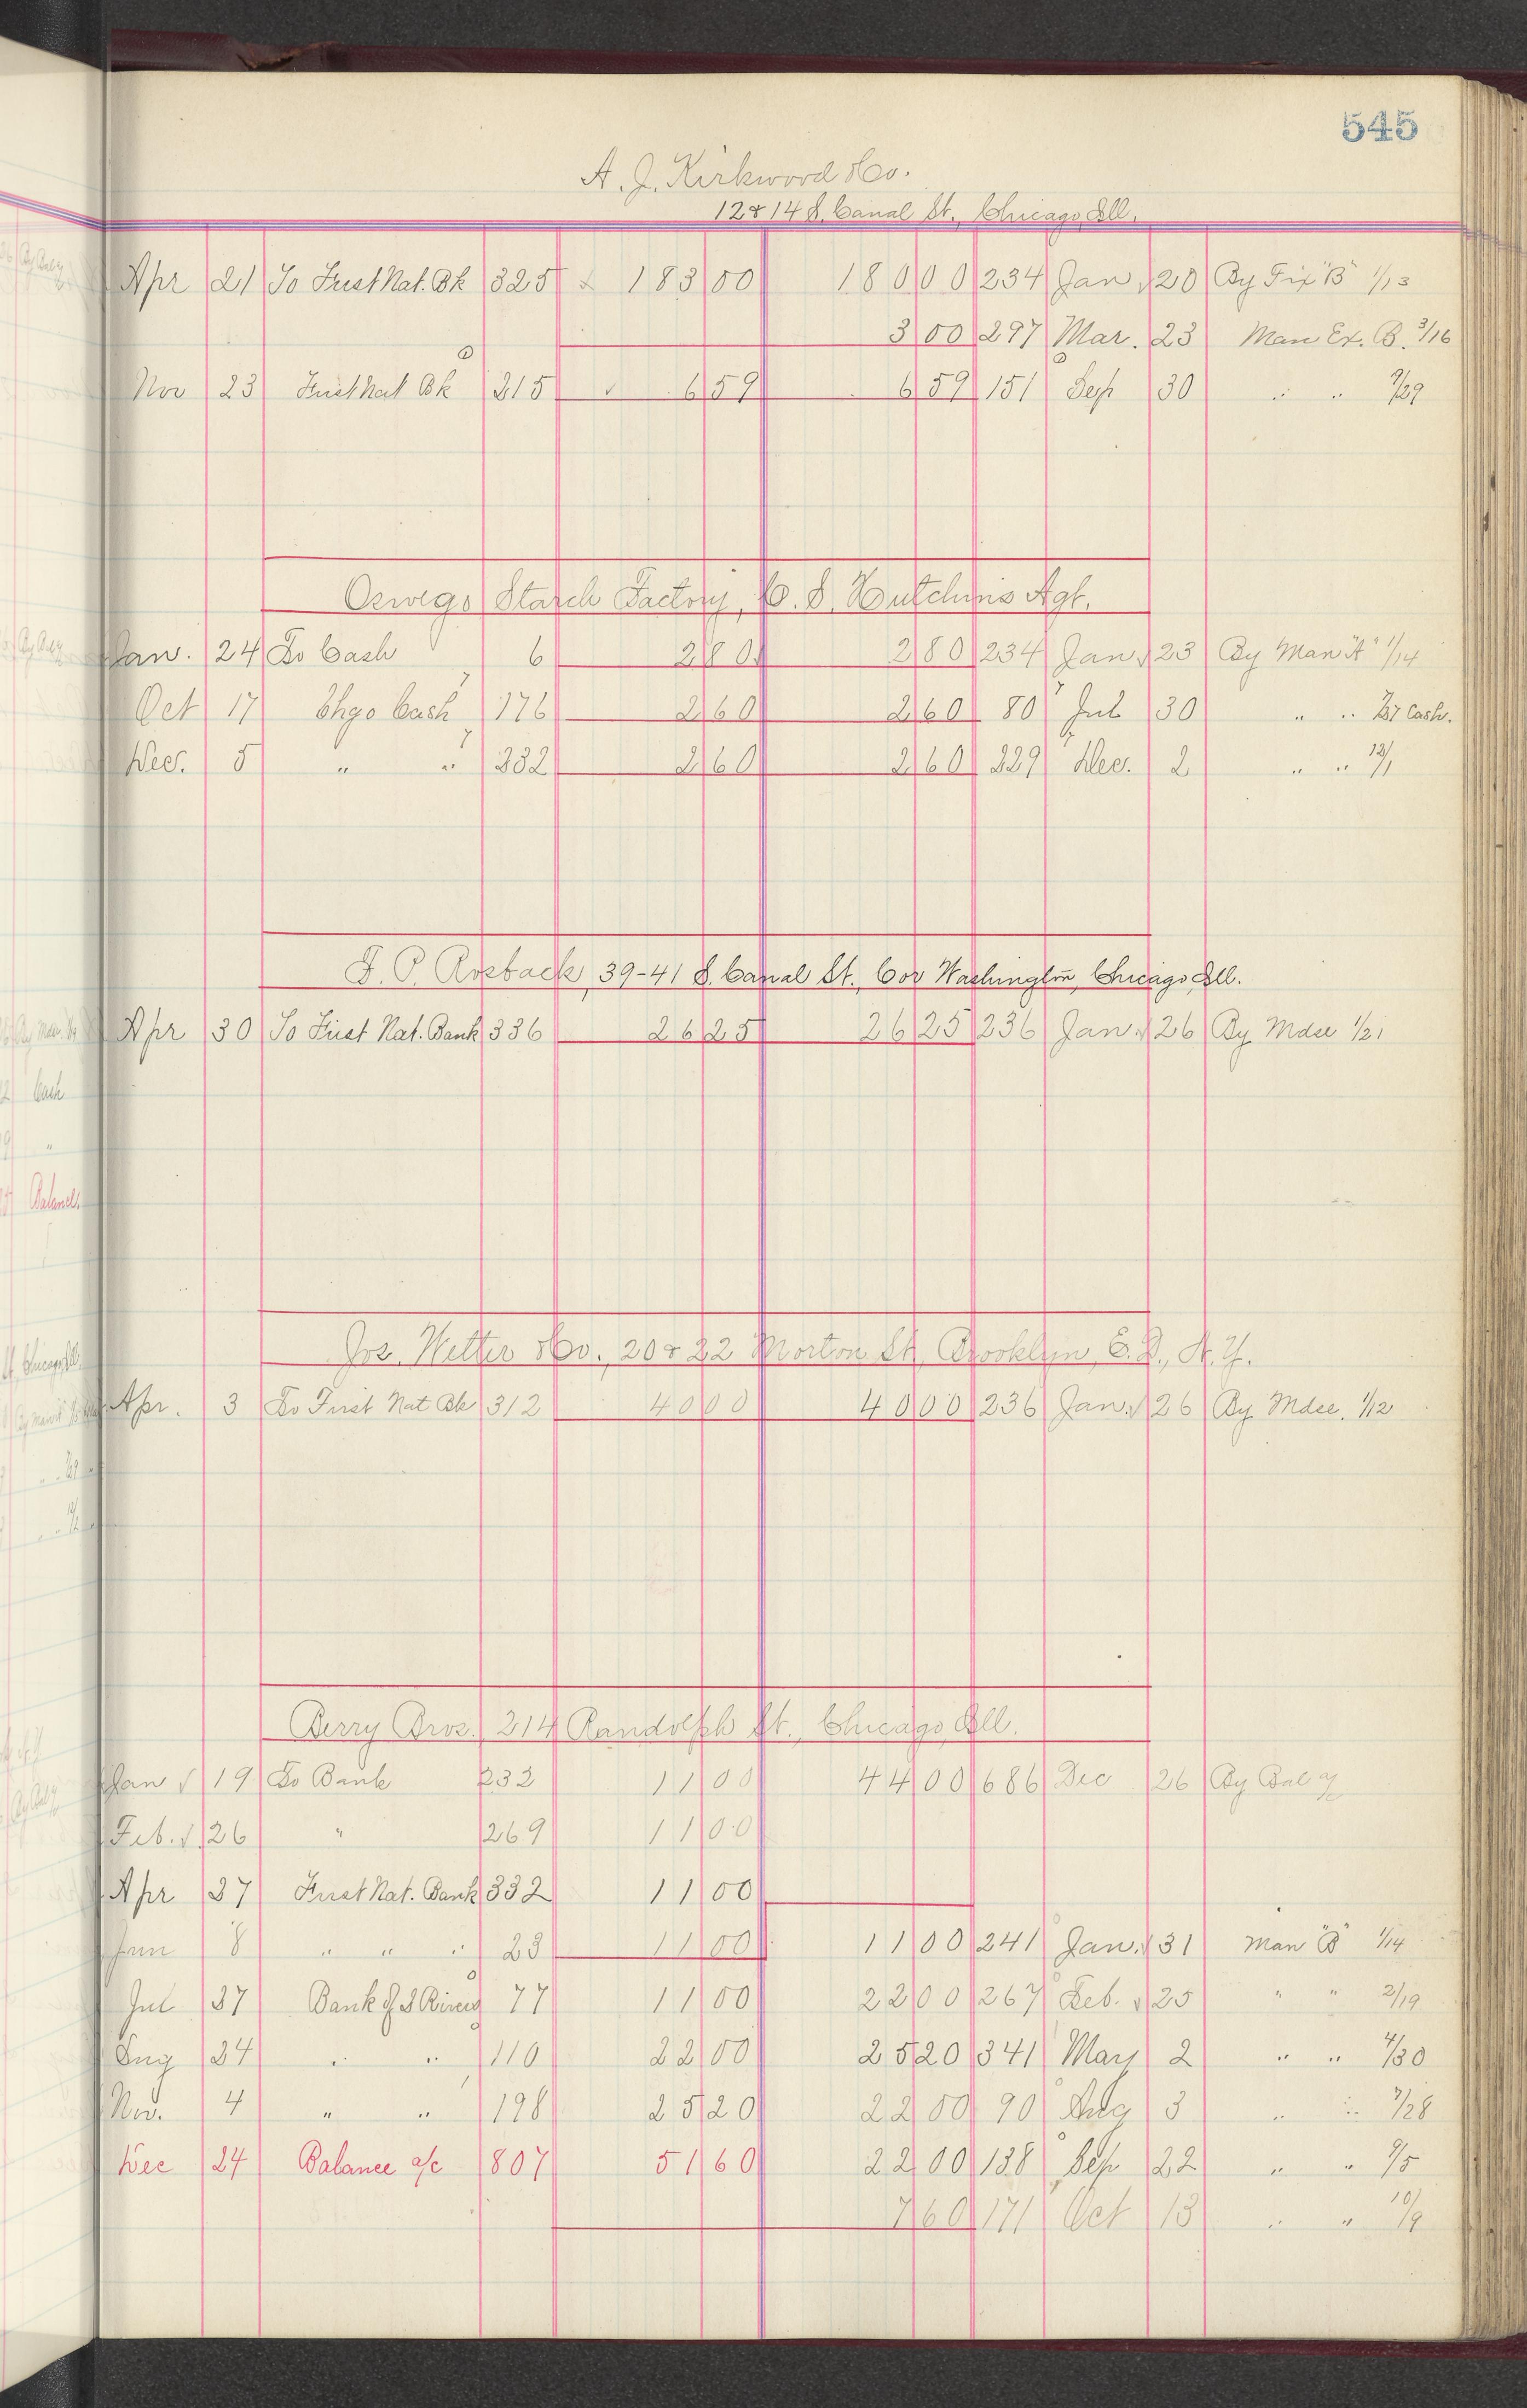 545
A. J. Kirkwood & Co.
12 & 14 S. Canal St., Chicago, Ill.
Apr 21 To First Nat. Bk 325 183 00 180 00 234 Jan 20 By Fix "B" 1/13
3 00 297 Mar. 23 Man Ex. B. 3/16
Nov 23 First Nat Bk 215 6 59 6 59 151 Sep 30 " " 9/29
Oswego Starch Factory, C. S. Hutchins Agt.
Jan. 24 To Cash 6 2 80 2 80 234 Jan. 23 By Man "A" 1/14
Oct 17 Chgo Cash 176 2 60 2 60 80 Jul 30 " " Cash.
Dec. 5 " " 232 2 60 2 60 229 Dec. 2 " " 12/1
F. P. Rosback, 39-41 S. Canal St., Cor Washington, Chicago, Ill.
Apr 30 To First Nat. Bank 336 26 25 26 25 236 Jan. 26 By Mdse 1/21
Jos. Wetter & Co., 20 & 22 Morton St, Brooklyn, E. D., N. Y.
Apr. 3 To First Nat Bk 312 40 00 40 00 236 Jan. 26 By Mdse. 1/12
Berry Bros. 214 Randolph St., Chicago, Ill.
Jan 19 To Bank 232 11 00 44 00 686 Dec 26 By Bal a/c
Feb. 26 " 269 11 00
Apr 27 First Nat. Bank 332 11 00
Jun 8 " " " 23 11 00 11 00 241 Jan. 31 Man "B" 1/14
Jul 27 Bank of 2 Rivers 77 11 00 22 00 267 Feb. 25 " " 2/19
Aug 24 " " 110 22 00 25 20 341 May 2 " " 4/30
Nov. 4 " " 198 25 20 22 00 90 Aug 3 " " 7/28
Dec 24 Balance a/c 807 51 60 22 00 138 Sep 22 " " 9/5
7 60 171 Oct 13 " " 10/9